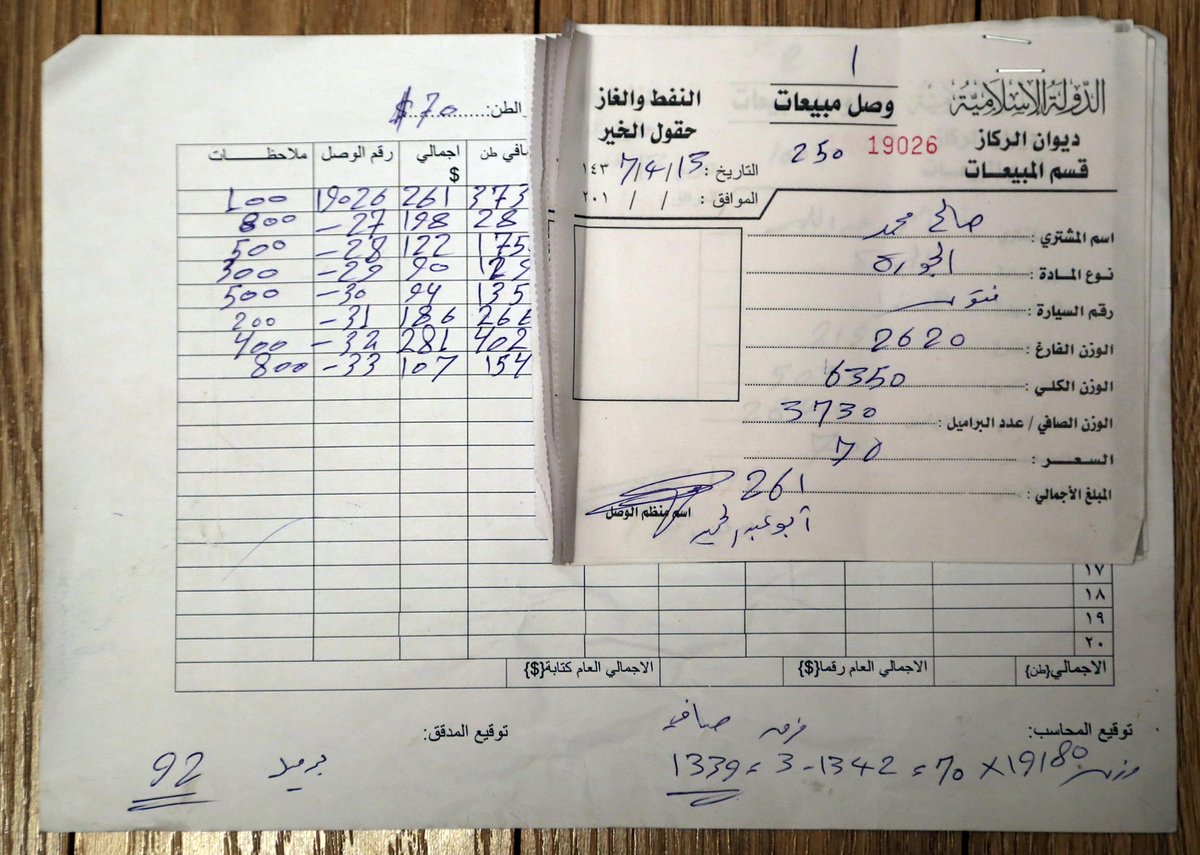 الطن: $70
ملاحظات رقم الوصل اجمالي $ صافي طن
100 19026 261 373
800 -27 198 28
500 -28 122 175
300 -29 90 129
500 -30 94 135
200 -31 186 266
400 -32 281 402
800 -33 107 154
١٧
١٨
١٩
٢٠
الاجمالي{طن} الاجمالي العام رقما{$} الاجمالي العام كتابة{$}
توقيع المحاسب: توقيع المدقق:
صافي
وزن 19180 × 70 = 1342 - 3 = 1339
92
1
الدولة الإسلامية
ديوان الركاز
قسم المبيعات
وصل مبيعات
250 19026
النفط والغاز
حقول الخير
التاريخ: 13/4/7 ١٤٣
الموافق: / / ٢٠١
اسم المشتري: صالح محمد
نوع المادة:
رقم السيارة:
الوزن الفارغ: 2620
الوزن الكلي: 6350
الوزن الصافي / عدد البراميل: 3730
السعر: 70
المبلغ الأجمالي: 261
اسم منظم الوصل